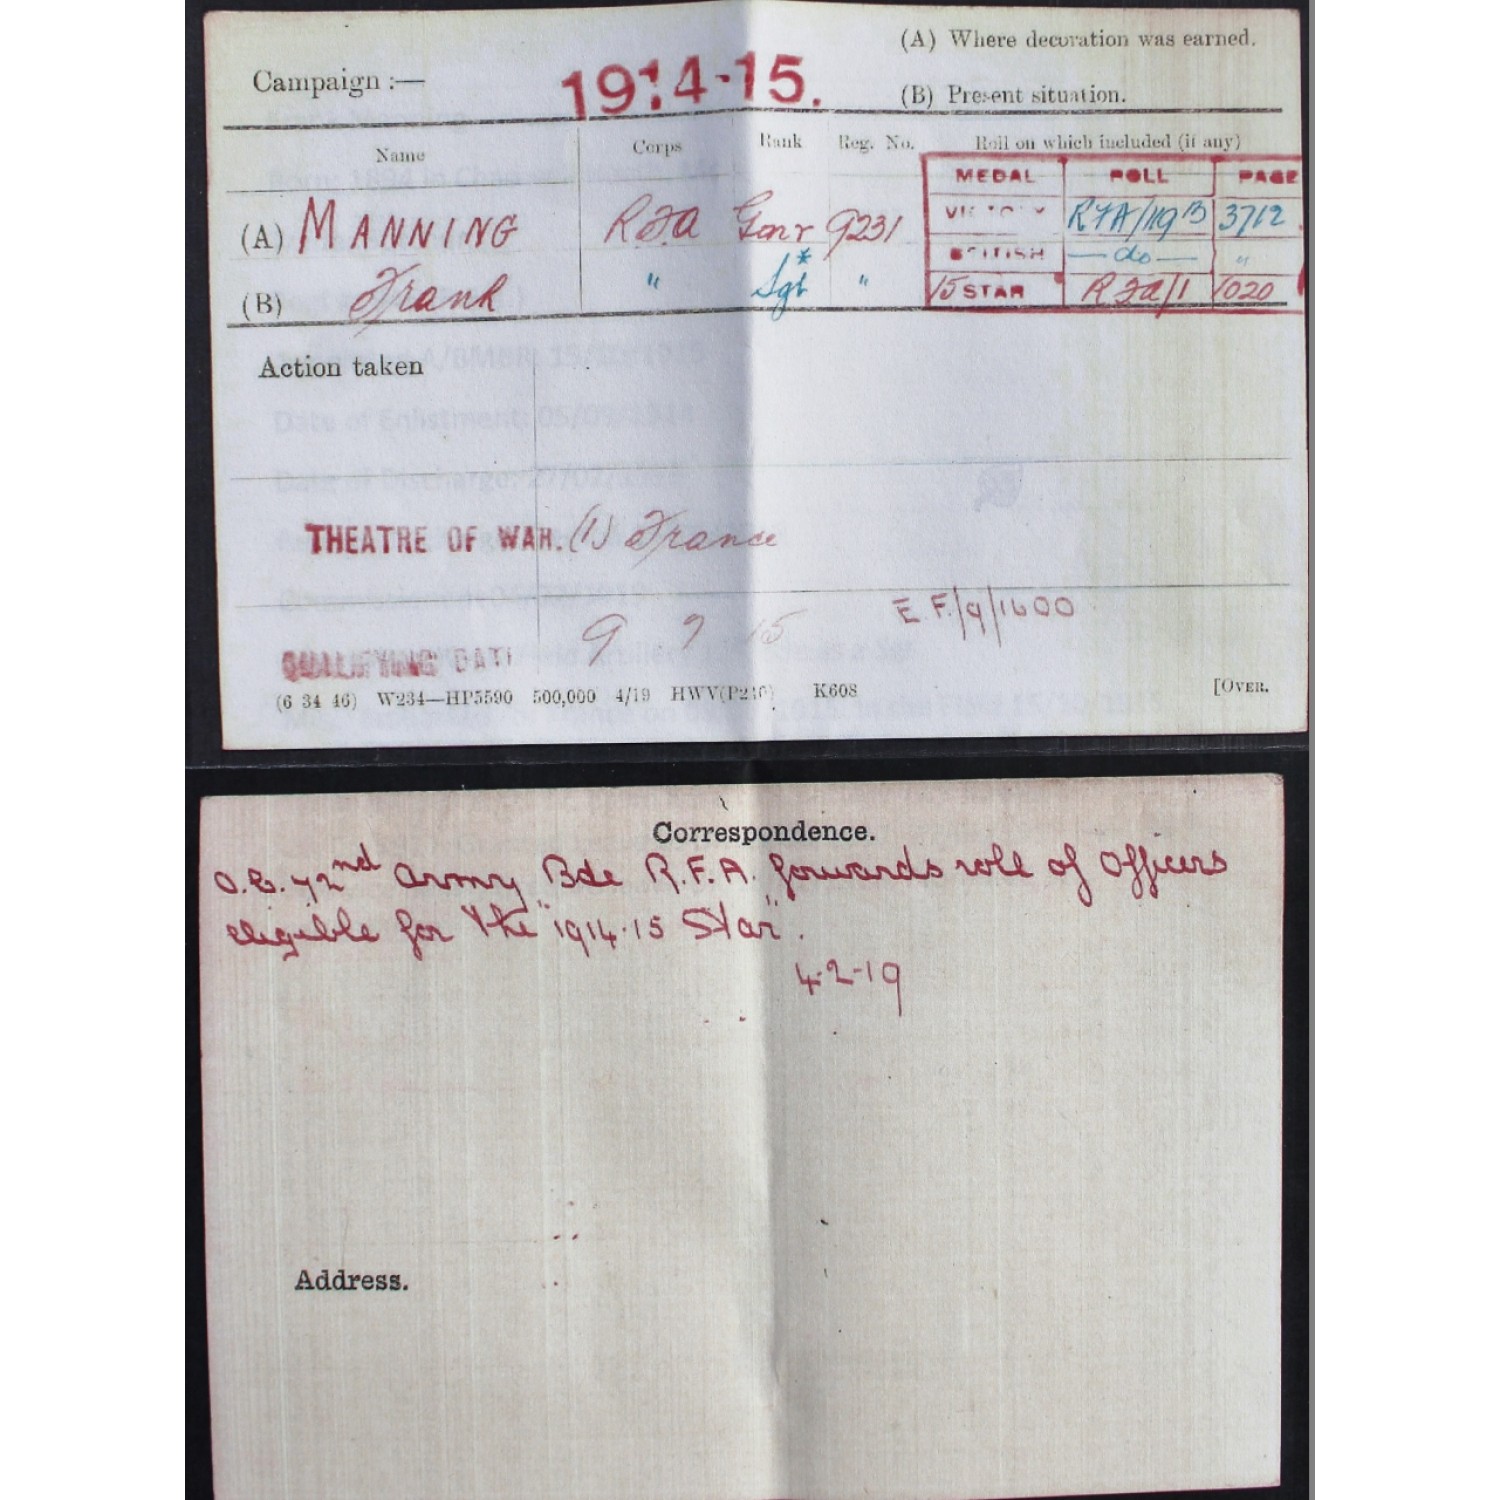 (A) Where decoration was earned.
Campaign :— 1914-15.
(B) Present situation.
Name Corps Rank Reg. No. Roll on which included (if any)
MEDAL ROLL PAGE
(A) MANNING RFA Gnr 9231 VICTORY RFA/119B 3712
BRITISH —do— "
(B) Frank " Sgt* " 15 STAR RFA/1 1020
Action taken
THEATRE OF WAR. (1) France
E.F./9/1600
QUALIFYING DATE 9 9 15
(6 34 46) W234—HP5590 500,000 4/19 HWV(P240) K608 [OVER.
Correspondence.
O.C. 72nd Army Bde R.F.A. forwards roll of Officers
eligible for the "1914-15 Star".
4-2-19
Address.